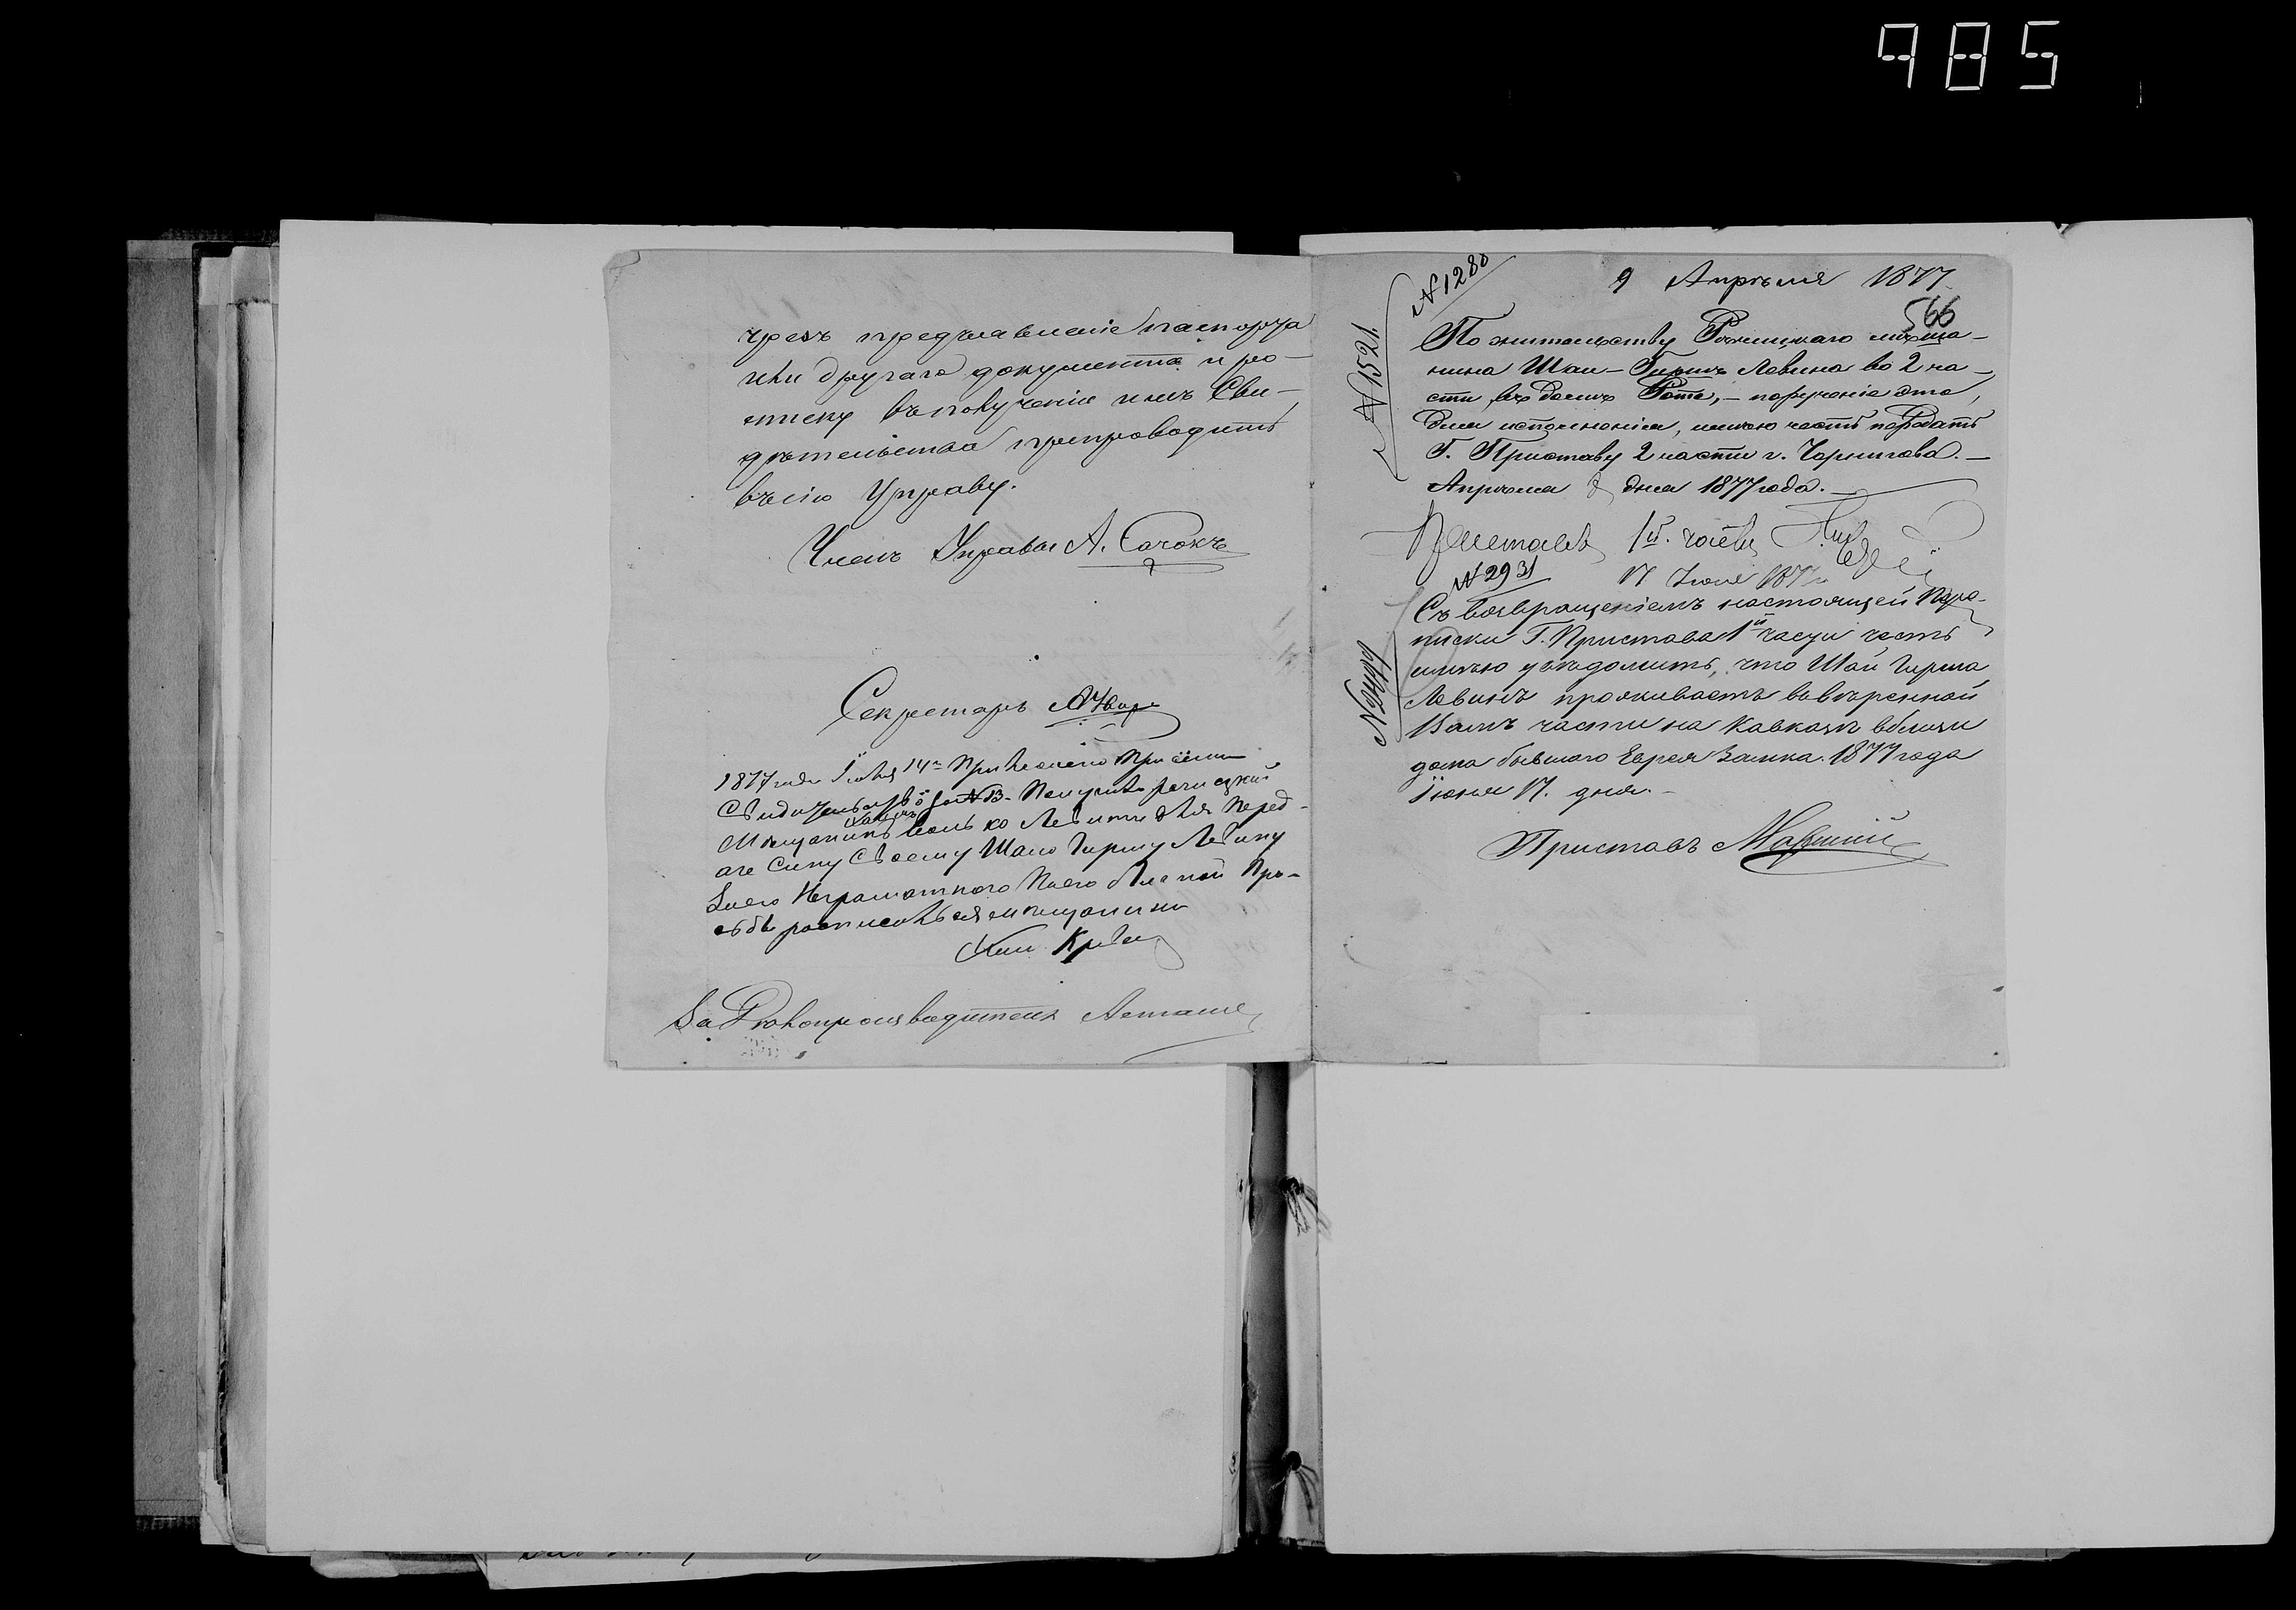 985
чрезъ предъявленіе паспорта
или другаго документа и ро-
списку въ полученіи имъ Сви-
дѣтельства препроводить
въ сію Управу.
Членъ Управы А. Сачокъ
Секретарь
1877 года Іюня 14го При
Свидѣтельство за № 13. Получилъ речицкій
Мѣщанинъ Левинъ для перед-
аче Сину Своему Шаю Гиршу Левину
Заего Неграмотного Поего личной Про-
сьбѣ росписался мѣщанинъ
За Дѣлопроизводителя
№ 1280
№ 1521
9 Апрѣля 1877
566
По жительству Рѣчицкаго мѣща-
нина Шаи-Гирша Левина во 2 ча-
сти, въ домѣ Рота, - порученіе это,
для исполненія, имѣю честь передать
Г. Приставу 2 части г. Чернигова. -
Апрѣля 8 дня 1877 года. -
Приставъ 1й. части
№ 2931
17 Іюня 1877
№ 2449
Съ возвращеніемъ настоящей Пере-
писки Г. Пристава 1й части честь
имѣю увѣдомить, что Шай Гирша
Левинъ проживаетъ во ввѣренной
Вамъ части на Кавказѣ вблизи
дома бывшаго Еврея Замка. 1877 года
Іюня 17. дня. -
Приставъ